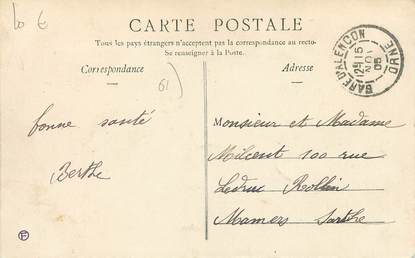 10 €
CARTE POSTALE
Tous les pays étrangers n'acceptent pas la correspondance au recto-
Se renseigner à la Poste.
Correspondance
Adresse
61)
GARE D'ALENCON
ORNE
15
NOV
05
bonne santé
Berthe
Monsieur et Madame
Milcent 100 rue
Ledru Rollin
Mamers Sarthe
F